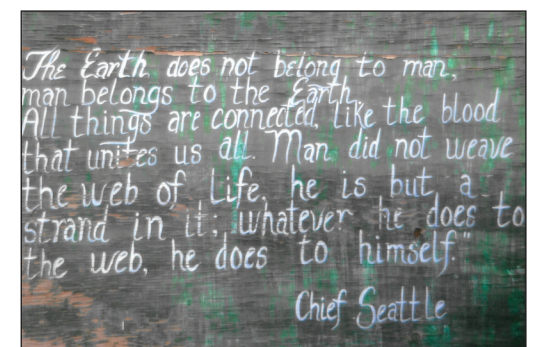 The Earth does not belong to man,
man belongs to the Earth
All things are connected, like the blood
that unites us all. Man did not weave
the web of Life, he is but a
strand in it; whatever he does to
the web, he does to himself."
Chief Seattle